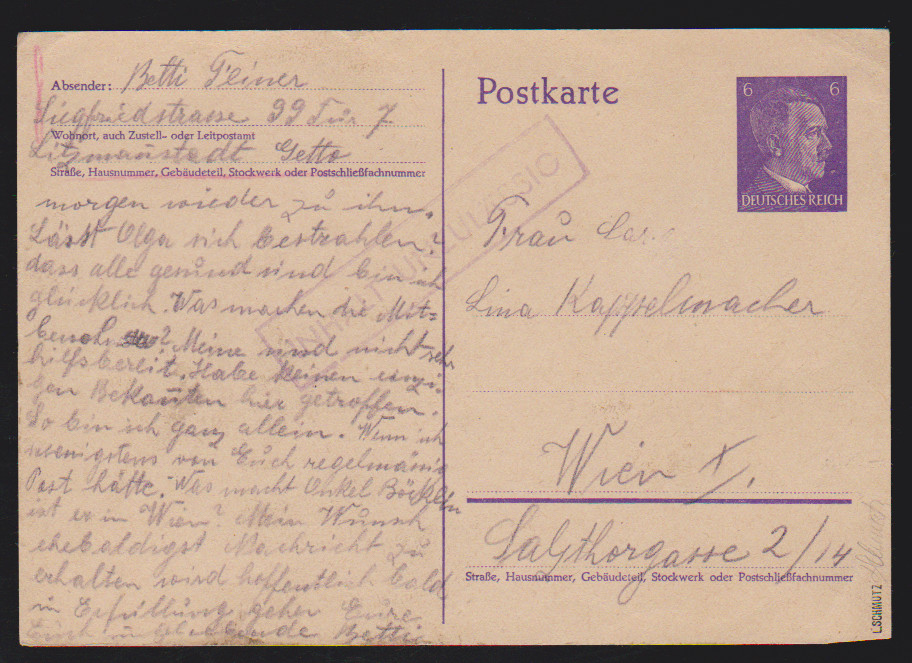 Absender: Betti Fleiner
Siegfriedstrasse 99 Tür 7
Wohnort, auch Zustell- oder Leitpostamt
Litzmannstadt Getto
Straße, Hausnummer, Gebäudeteil, Stockwerk oder Postschließfachnummer
morgen wieder zu ihm.
Lässt Olga sich bestrahlen?
dass alle gesund sind bin ich
glücklich. Was machen die Mit=
bewoh ? Meine sind nicht sehr
hilfsbereit. Habe keinen einzi-
gen Bekannten hier getroffen.
So bin ich ganz allein. Wenn ich
wenigstens von Euch regelmässig
Post hätte. Was macht Onkel
ist er in Wien? Mein Wunsch
ehebaldigst Nachricht zu
erhalten wird hoffentlich bald
in Erfüllung gehen Eure
Euch Betti
Postkarte
6 6
DEUTSCHES REICH
INHALT UNZULÄSSIG
Frau
Lina Kappelmacher
Wien X.
Salzthorgasse 2/14
Straße, Hausnummer, Gebäudeteil, Stockwerk oder Postschließfachnummer